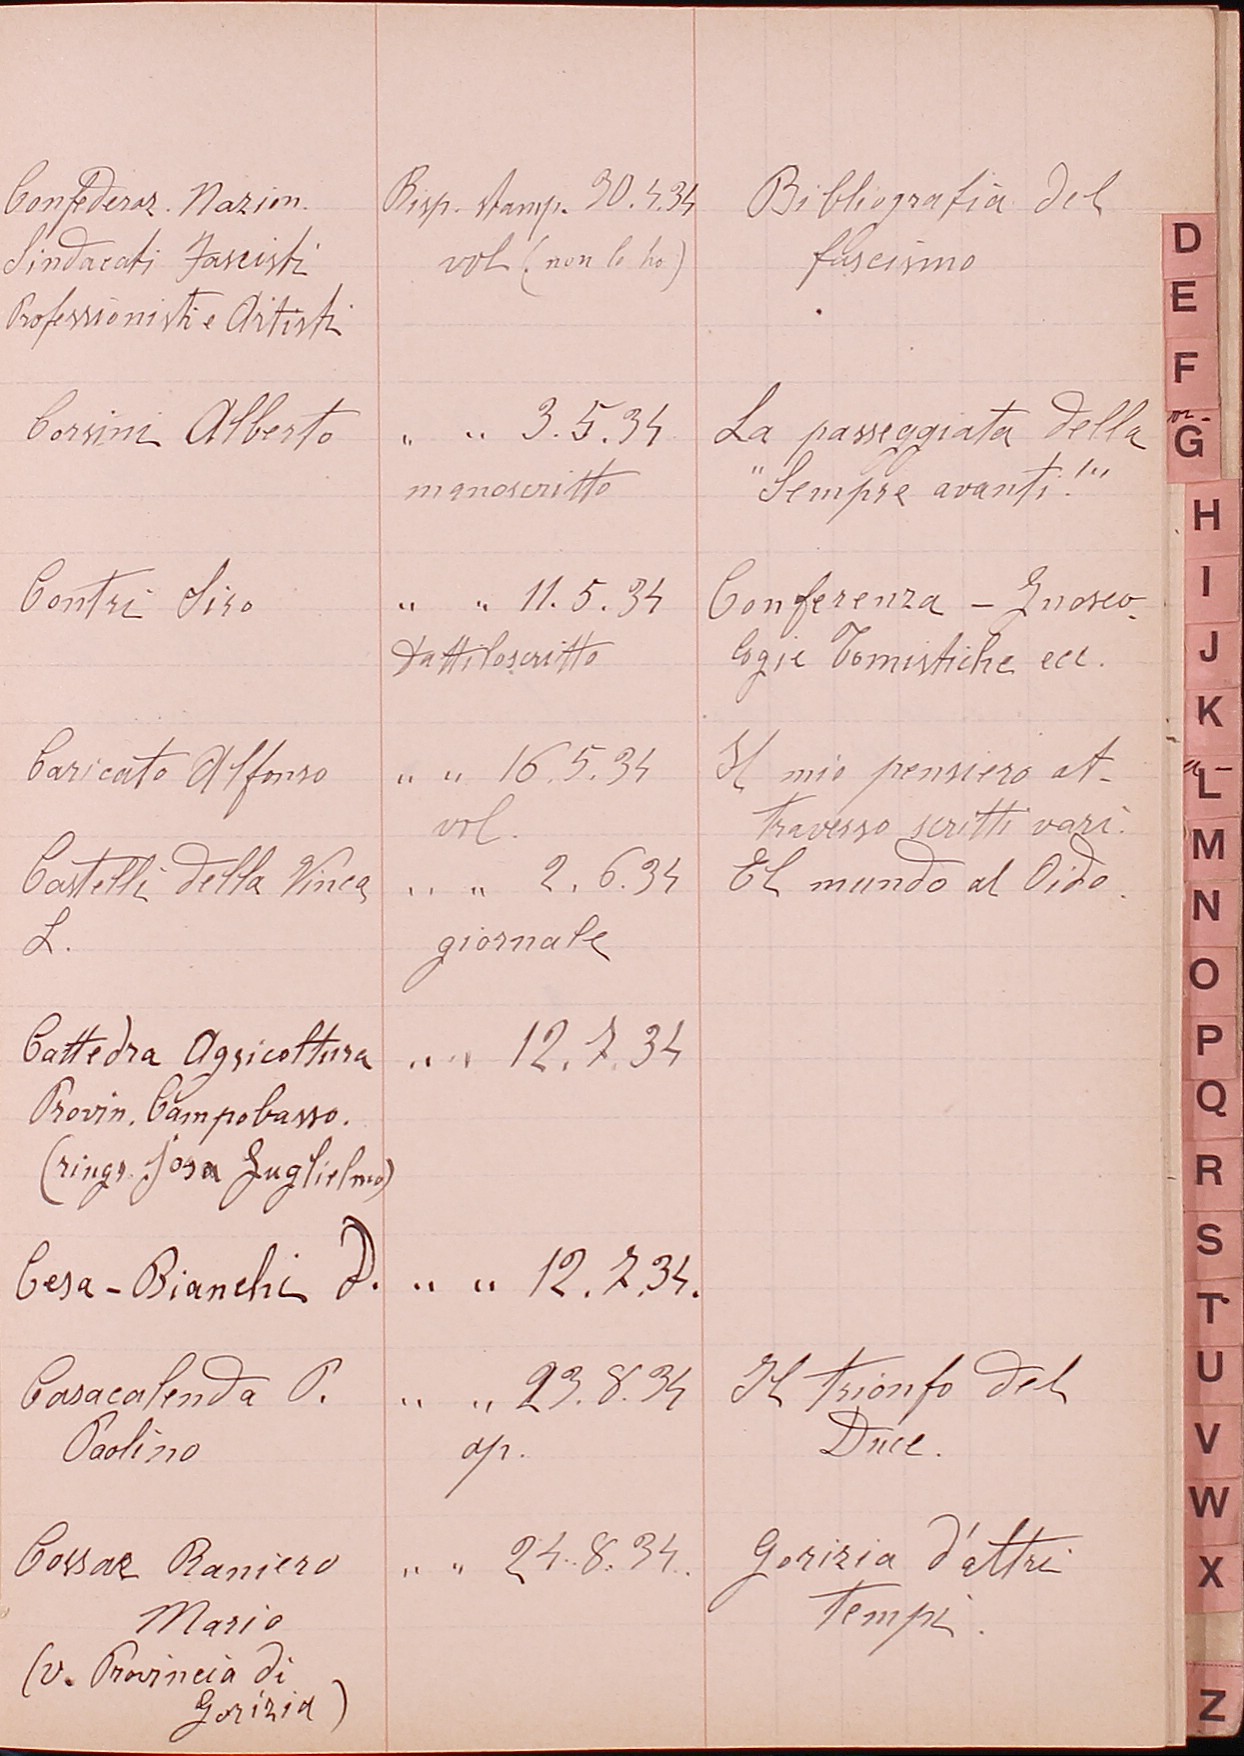 Confederaz. Nazion.
Sindacati Fascisti
Professionisti e Artisti
Risp. stamp. 30.4.34
vol (non lo ho)
Bibliografia del
fascismo
Corsini Alberto
" " 3.5.34
manoscritto
La passeggiata della
"Sempre avanti!"
Contri Siro
" " 11.5.34
dattiloscritto
Conferenza - Gnoseo-
logie Tomistiche ecc.
Caricato Alfonso
" " 16.5.34
vol.
Il mio pensiero at-
traverso scritti vari.
Castelli della Vinca
L.
" " 2.6.34
giornale
El mundo al Oido.
Cattedra Agricoltura
Provin. Campobasso.
(rings. Josa Guglielmo)
" " 12.7.34
Cesa-Bianchi D.
" " 12.7.34.
Casacalenda P.
Paolino
" " 23.8.34
op.
Il trionfo del
Duce.
Cossar Raniero
Mario
(v. Provincia di
Gorizia)
" " 24.8.34.
Gorizia d'altri
tempi.
D
E
F
G
H
I
J
K
L
M
N
O
P
Q
R
S
T
U
V
W
X
Z